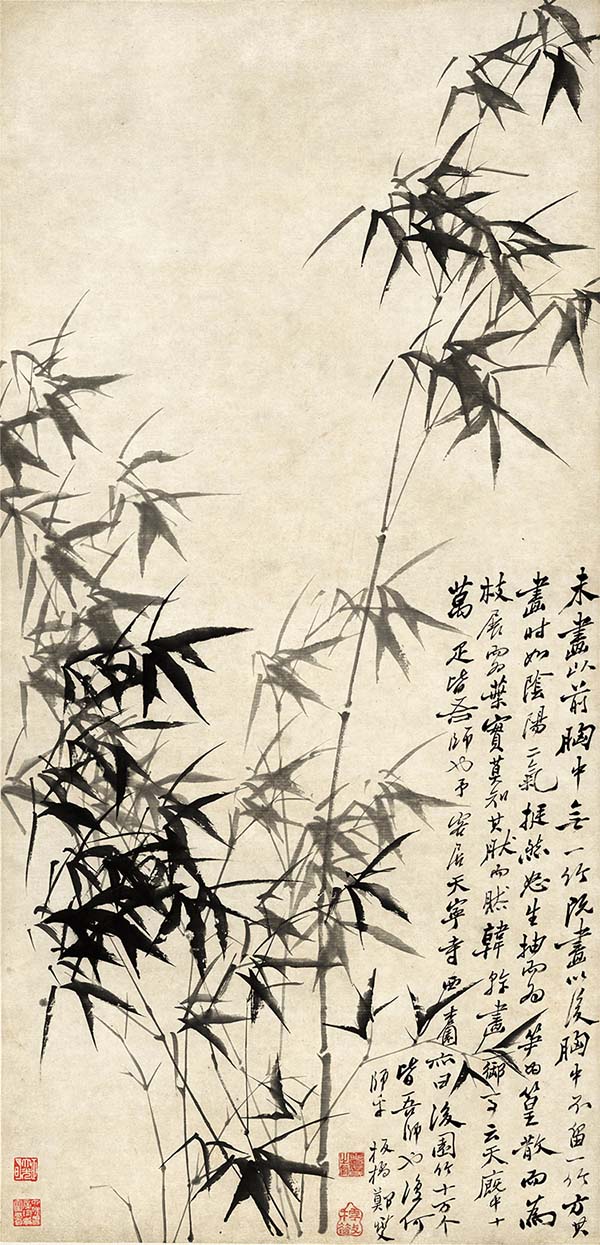 未畫以前胸中無一竹既畫以後胸中不留一竹方其
畫時如陰陽二氣挺然怒生抽而為筍為篁散而為
枝展而為葉實莫知其然而然韓幹畫御馬云天廄中十
萬疋皆吾師也予客居天寧寺西杏園亦曰後園竹十萬个
皆吾師也復何
師乎 板橋鄭燮